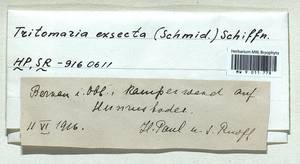 Tritomaria exsecta (Schmid.) Schiffn.
HP, SR - 916 0611
Herbarium MW, Bryophyta
MW 9 011 778
i. Obb.; Kampenwand auf
Humusboden.
11 VI 1916. H. Paul u. S. Ruoff